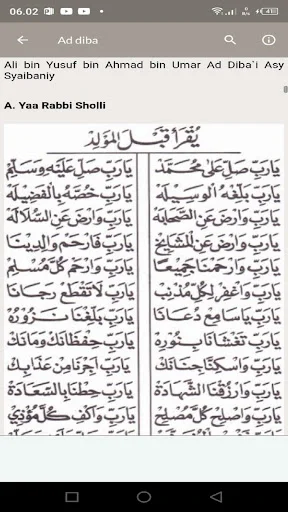 06.02
Ad diba
Ali bin Yusuf bin Ahmad bin Umar Ad Diba`i Asy
Syaibaniy
A. Yaa Rabbi Sholli
يُقْرَأُ قَبْلَ الْمَوْلِدِ
يَارَبِّ صَلِّ عَلَى مُحَمَّدْ يَارَبِّ صَلِّ عَلَيْهِ وَسَلِّمْ
يَارَبِّ بَلِّغْهُ الْوَسِيْلَهْ يَارَبِّ خُصَّهْ بِالْفَضِيْلَهْ
يَارَبِّ وَارْضَ عَنِ الصَّحَابَهْ يَارَبِّ وَارْضَ عَنِ السُّلَالَهْ
يَارَبِّ وَارْضَ عَنِ الْمَشَايِخْ يَارَبِّ فَارْحَمْ وَالِدِيْنَا
يَارَبِّ وَارْحَمْنَا جَمِيْعًا يَارَبِّ وَارْحَمْ كُلَّ مُسْلِمْ
يَارَبِّ وَاغْفِرْ لِكُلِّ مُذْنِبْ يَارَبِّ لَا تَقْطَعْ رَجَانَا
يَارَبِّ يَاسَامِعْ دُعَانَا يَارَبِّ بَلِّغْنَا نَزُوْرُهْ
يَارَبِّ تَغْشَانَا بِنُوْرِهْ يَارَبِّ حِفْظَانَكْ وَامَانَكْ
يَارَبِّ وَاسْكِنَّا جِنَانَكْ يَارَبِّ اَجِرْنَا مِنْ عَذَابِكْ
يَارَبِّ وَارْزُقْنَا الشَّهَادَةْ يَارَبِّ حِطْنَا بِالسَّعَادَةْ
يَارَبِّ وَاصْلِحْ كُلَّ مُصْلِحْ يَارَبِّ وَاكْفِ كُلَّ مُؤْذِيْ